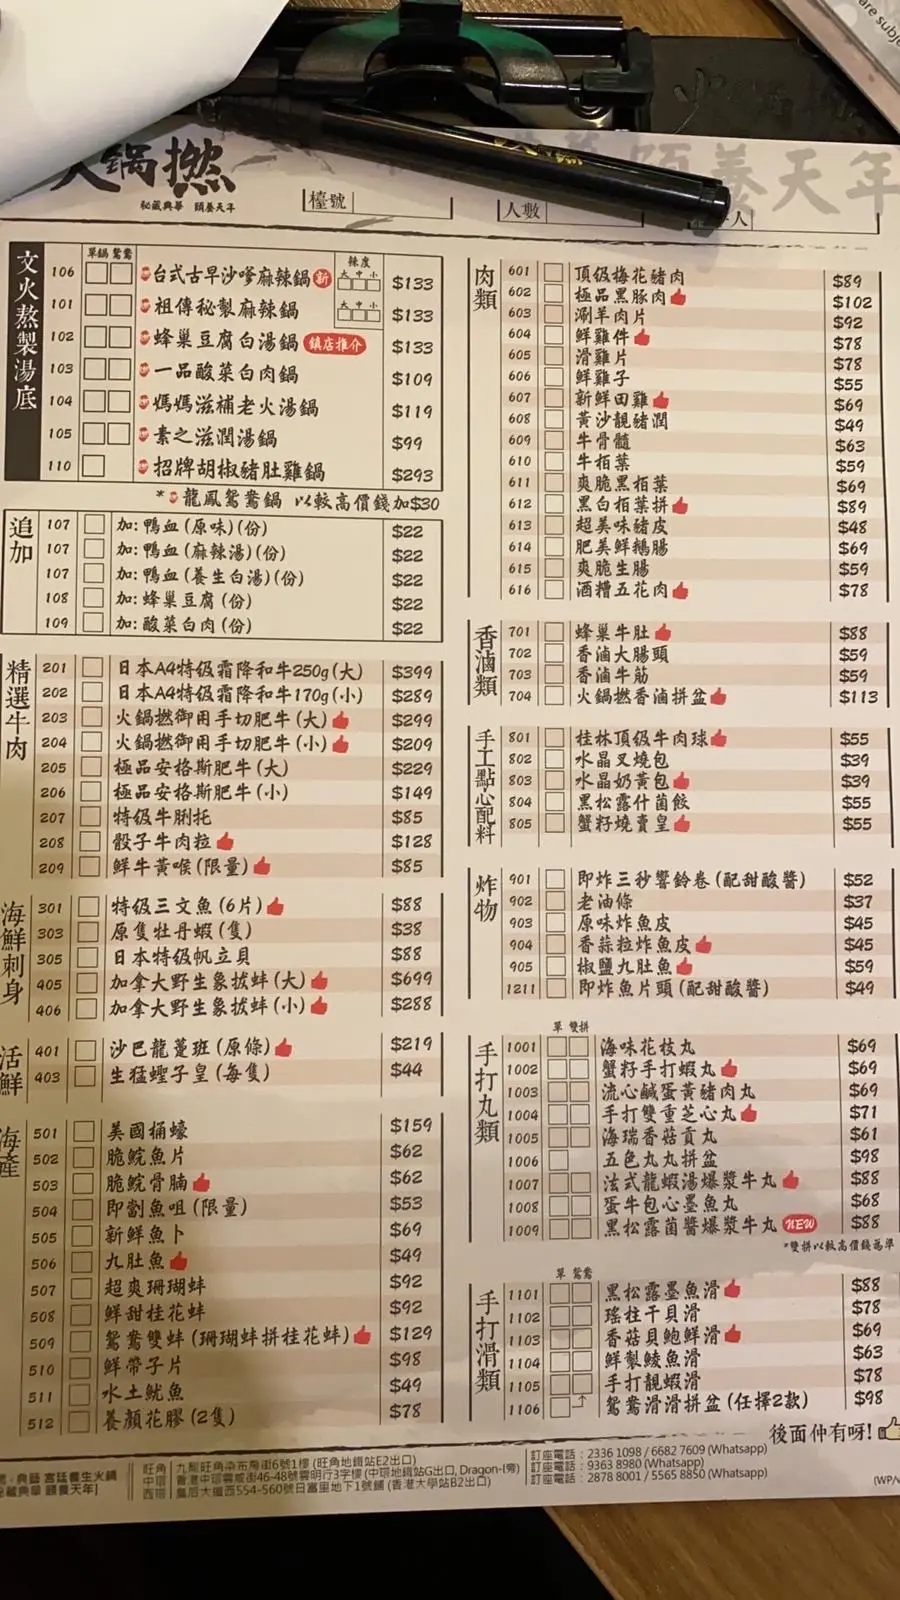 are subje
火鍋撚
秘藏典華 頤養天年
頤養天年
檯號
人數
人
文火熬製湯底
單鍋 鴛鴦
辣度
大 中 小
106 台式古早沙嗲麻辣鍋 新 $133
大 中 小
101 祖傳秘製麻辣鍋 $133
102 蜂巢豆腐白湯鍋 鎮店推介 $133
103 一品酸菜白肉鍋 $109
104 媽媽滋補老火湯鍋 $119
105 素之滋潤湯鍋 $99
110 招牌胡椒豬肚雞鍋 $293
* 龍鳳鴛鴦鍋 以較高價錢加$30
追加
107 加:鴨血(原味)(份) $22
107 加:鴨血(麻辣湯)(份) $22
107 加:鴨血(養生白湯)(份) $22
108 加:蜂巢豆腐(份) $22
109 加:酸菜白肉(份) $22
精選牛肉
201 日本A4特级霜降和牛250g(大) $399
202 日本A4特级霜降和牛170g(小) $289
203 火鍋撚御用手切肥牛(大) $299
204 火鍋撚御用手切肥牛(小) $209
205 極品安格斯肥牛(大) $229
206 極品安格斯肥牛(小) $149
207 特级牛脷托 $85
208 骰子牛肉粒 $128
209 鮮牛黃喉(限量) $85
海鮮刺身
301 特级三文魚(6片) $88
303 原隻牡丹蝦(隻) $38
305 日本特级帆立貝 $88
405 加拿大野生象拔蚌(大) $699
406 加拿大野生象拔蚌(小) $288
活鮮
401 沙巴龍躉班(原條) $219
403 生猛蟶子皇(每隻) $44
海產
501 美國桶蠔 $159
502 脆鯇魚片 $62
503 脆鯇骨腩 $62
504 即劏魚咀(限量) $53
505 新鮮魚卜 $69
506 九肚魚 $49
507 超爽珊瑚蚌 $92
508 鮮甜桂花蚌 $92
509 鴛鴦雙蚌(珊瑚蚌拼桂花蚌) $129
510 鮮帶子片 $98
511 水土魷魚 $49
512 養顏花膠(2隻) $78
肉類
601 頂级梅花豬肉 $89
602 極品黑豚肉 $102
603 涮羊肉片 $92
604 鮮雞件 $78
605 滑雞片 $78
606 鮮雞子 $55
607 新鮮田雞 $69
608 黃沙靚豬潤 $49
609 牛骨髓 $63
610 牛栢葉 $59
611 爽脆黑栢葉 $69
612 黑白栢葉拼 $89
613 超美味豬皮 $48
614 肥美鮮鵝腸 $69
615 爽脆生腸 $59
616 酒糟五花肉 $78
香滷類
701 蜂巢牛肚 $88
702 香滷大腸頭 $59
703 香滷牛筋 $59
704 火鍋撚香滷拼盆 $113
手工點心配料
801 桂林頂级牛肉球 $55
802 水晶叉燒包 $39
803 水晶奶黃包 $39
804 黑松露什菌餃 $55
805 蟹籽燒賣皇 $55
炸物
901 即炸三秒響鈴卷(配甜酸醬) $52
902 老油條 $37
903 原味炸魚皮 $45
904 香蒜粒炸魚皮 $45
905 椒鹽九肚魚 $59
1211 即炸魚片頭(配甜酸醬) $49
手打丸類
單 雙拼
1001 海味花枝丸 $69
1002 蟹籽手打蝦丸 $69
1003 流心鹹蛋黃豬肉丸 $69
1004 手打雙重芝心丸 $71
1005 海瑞香菇貢丸 $61
1006 五色丸丸拼盆 $98
1007 法式龍蝦湯爆漿牛丸 $88
1008 蛋牛包心墨魚丸 $68
1009 黑松露菌醬爆漿牛丸 NEW $88
*雙拼以較高價錢為準
手打滑類
單 鴛鴦
1101 黑松露墨魚滑 $88
1102 瑤柱干貝滑 $78
1103 香菇貝鮑鮮滑 $69
1104 鮮製鯪魚滑 $63
1105 手打靚蝦滑 $78
1106 鴛鴦滑滑拼盆(任擇2款) $98
後面仲有呀!
典藝 宮廷養生火鍋
藏典華 頤養天年]
旺角 九龍旺角染布房街6號1樓 (旺角地鐵站E2出口)
中環 香港中環雲咸街46-48號雲明行3字樓 (中環地鐵站G出口, Dragon-i旁)
西環 皇后大道西554-560號日富里地下1號舖 (香港大學站B2出口)
訂座電話:2336 1098 / 6682 7609 (Whatsapp)
訂座電話:9363 8980 (Whatsapp)
訂座電話:2878 8001 / 5565 8850 (Whatsapp)
(WP/